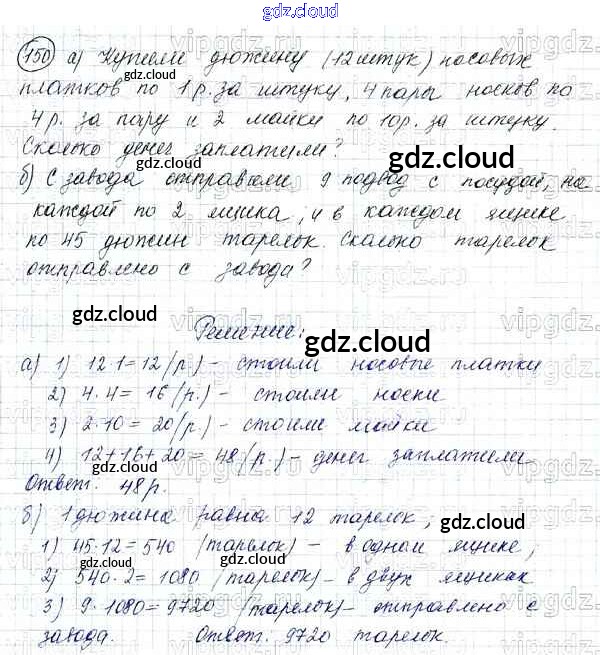 gdz.cloud
150 а) Купили дюжину (12 штук) носовых
платков по 1 р. за штуку, 4 пары носков по
4 р. за пару и 2 майки по 10р. за штуку.
Сколько денег заплатили?
gdz.cloud gdz.cloud
б) С завода отправили 9 подвод с посудой, на
каждой по 2 ящика, и в каждом ящике
по 45 дюжин тарелок. Сколько тарелок
отправлено с завода?
gdz.cloud
Решение:
gdz.cloud
а) 1) 12·1=12 (р.) – стоили носовые платки
2) 4·4= 16 (р.) – стоили носки
3) 2·10= 20 (р.) – стоили майки
4) 12+16+20=48 (р.) – денег заплатили.
gdz.cloud gdz.cloud
Ответ: 48 р.
б) 1 дюжина равна 12 тарелок;
gdz.cloud
1) 45·12=540 (тарелок) – в одном ящике;
2) 540·2=1080 (тарелок) – в двух ящиках
3) 9·1080=9720 (тарелок) – отправлено с
завода. Ответ: 9720 тарелок.
gdz.cloud gdz.cloud